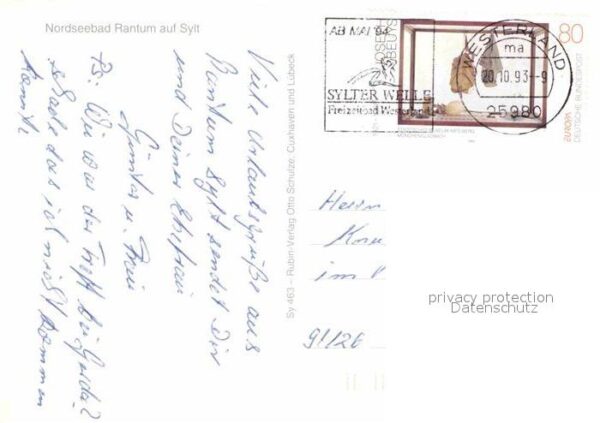 Nordseebad Rantum auf Sylt
Viele Urlaubsgrüße aus
Rantum Sylt sendet Dir
und Deiner Ehefrau
Günter u. Frau
PS: Wie war der Treff bei Gerda?
schade das ich nicht kommen
konnte
Sy 463 – Rubin-Verlag Otto Schulze, Cuxhaven und Lübeck
AB MAI '94
SYLTER WELLE
Freizeitbad Westerland
WESTERLAND
ma
20.10.93--9
25980
JOSEPH
BEUYS
80
EUROPA
DEUTSCHE BUNDESPOST
Herrn
im
91126
privacy protection
Datenschutz